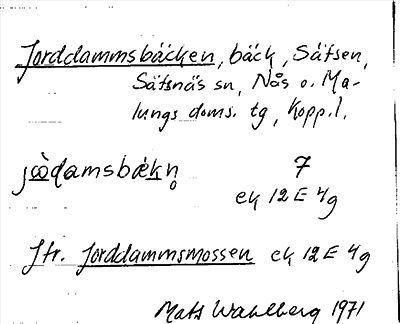 Jorddammsbäcken, bäck, Säfsen,
Säfsnäs sn, Nås o. Ma-
lungs doms. tg, Kopp. l.
jɷ̀damsbäkn̥ 7
ek 12 E 4g
Jfr. Jorddammsmossen ek 12 E 4g
Mats Wahlberg 1971